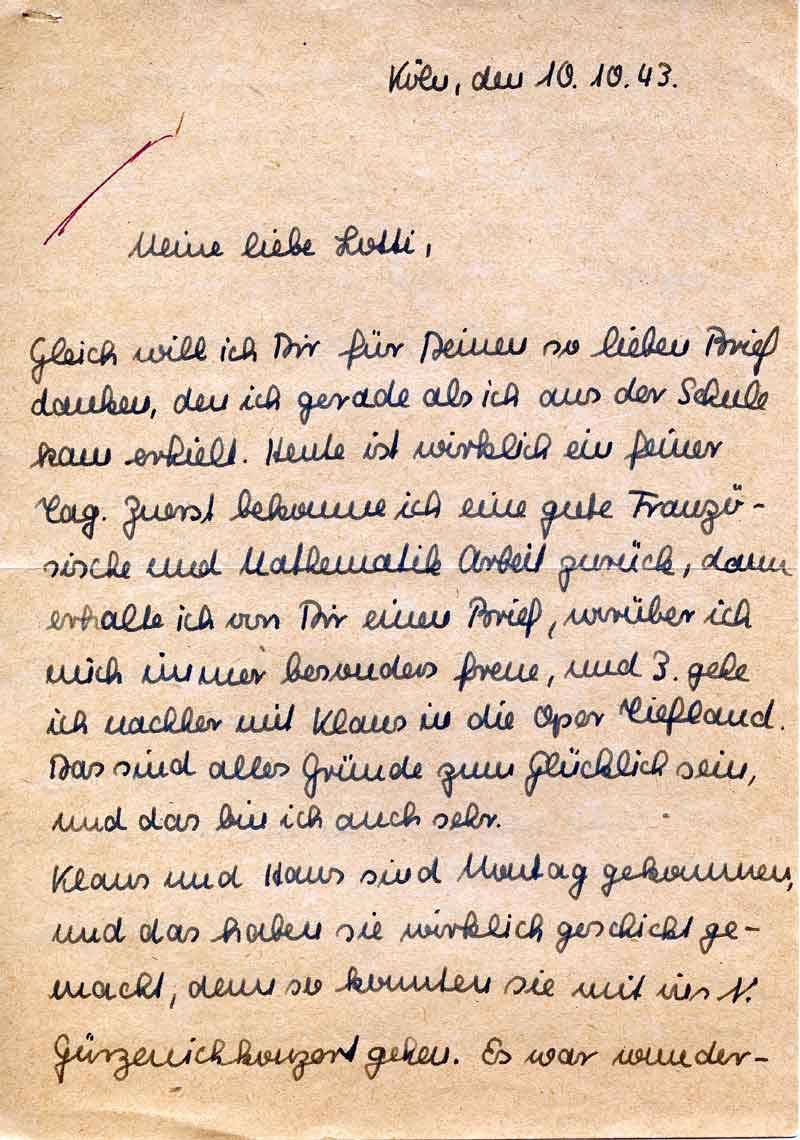 Köln, den 10. 10. 43.
Meine liebe Lotti,
Gleich will ich Dir für Deinen so lieben Brief
danken, den ich gerade als ich aus der Schule
kam erhielt. Heute ist wirklich ein feiner
Tag. Zuerst bekomme ich eine gute Franzö-
sische und Mathematik Arbeit zurück, dann
erhalte ich von Dir einen Brief, worüber ich
mich immer besonders freue, und 3. gehe
ich nachher mit Klaus in die Oper Tiefland.
Das sind alles Gründe zum Glücklich sein,
und das bin ich auch sehr.
Klaus und Hans sind Montag gekommen,
und das haben sie wirklich geschickt ge-
macht, denn so konnten sie mit ins
Gürzenichkonzert gehen. Es war wunder-